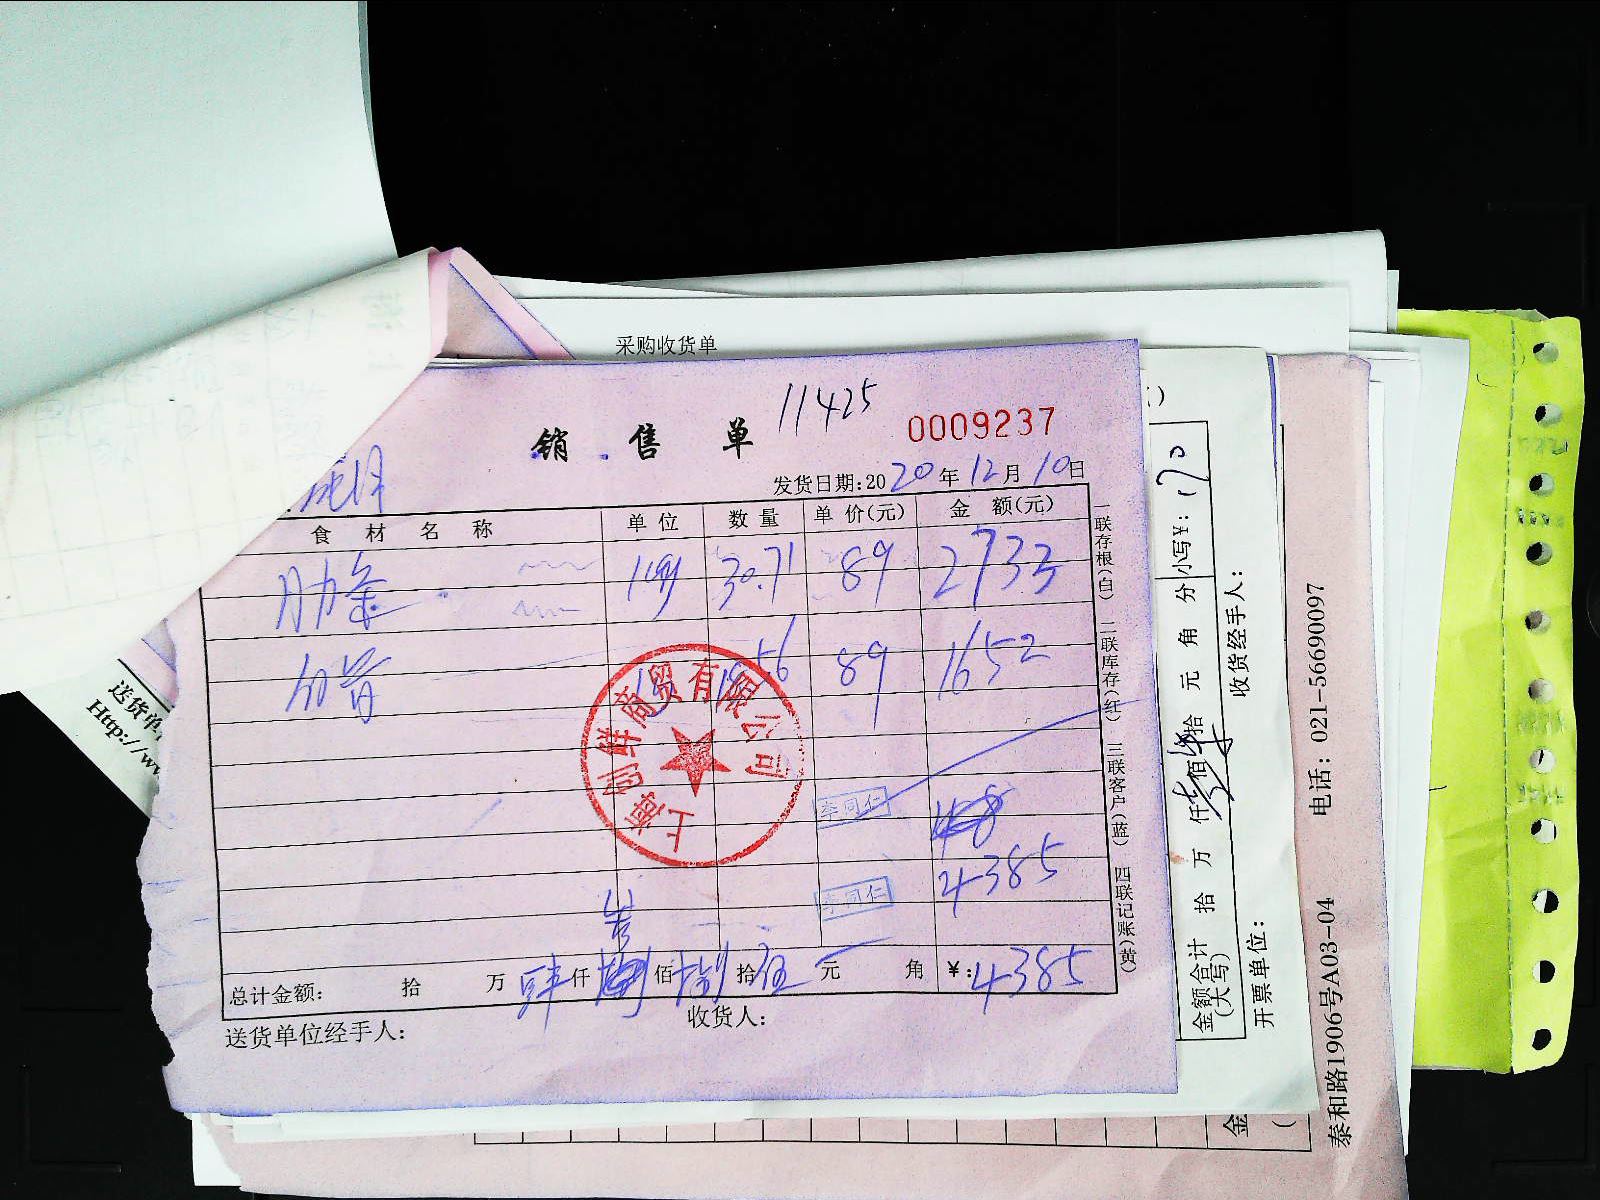 采购收货单
11425
销售单 0009237
发货日期:2020年12月10日
食材名称 单位 数量 单价(元) 金额(元)
肋条 30.71 89 2733
89 1652
李同仁
4385
李同仁
总计金额: 拾 万 肆仟 佰 捌拾伍元 角 ¥:4385
送货单位经手人: 收货人:
一联存根(白) 二联库存(红) 三联客户(蓝) 四联记账(黄)
上海创鲜商贸有限公司
送货单
Http://w
金额合计(大写) 拾 万 仟 佰 拾 元 角 分 小写¥:170
开票单位: 收货经手人:
泰和路1906号A03-04 电话: 021-56690097
金